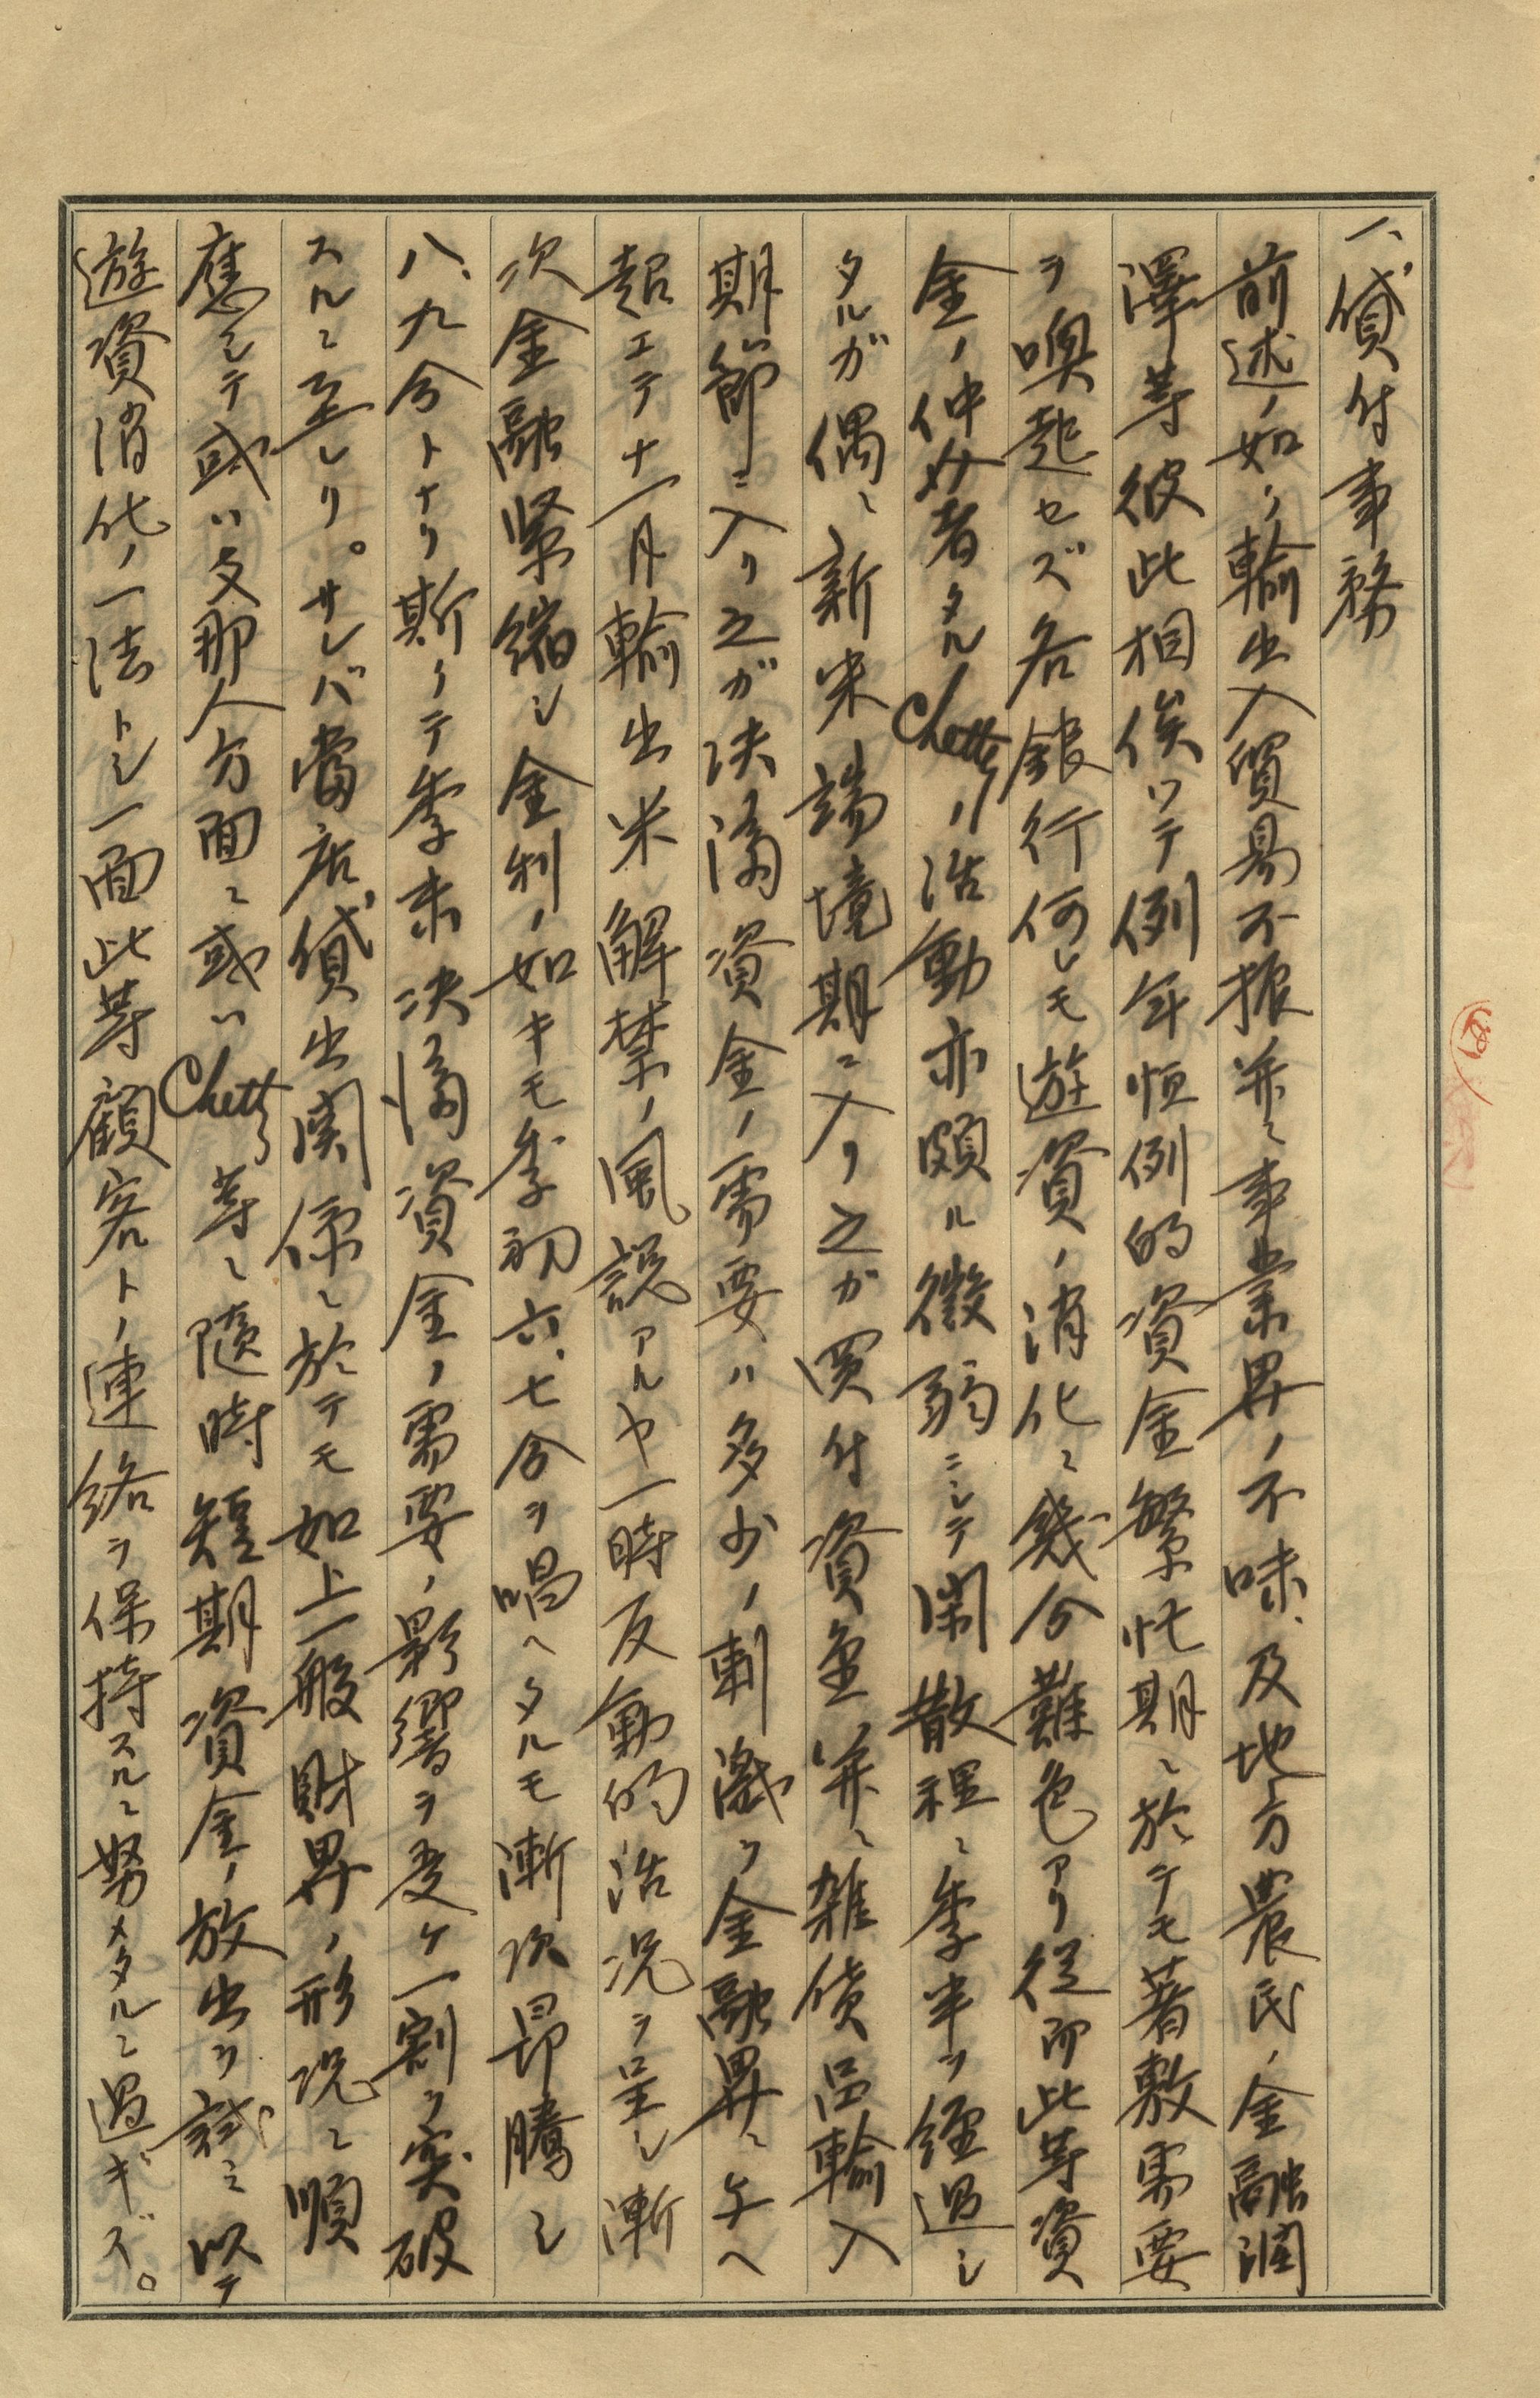 一、貸付事務
前述ノ如ク輸出入貿易不振並ニ事業界ノ不味、及地方農民ノ金融潤
澤等彼此相俟ツテ例年恒例的資金繁忙期ニ於テモ著敷需要
ヲ喚起セズ各銀行何レモ遊資ノ消化ニ幾分難色アリ従而此等資
金ノ仲介者タルChettyノ活動亦頗ル微弱ニシテ閑散裡ニ季半ヲ経過シ
タルガ偶ニ新米端境期ニ入リ之ガ買付資金並ニ雑貨品輸入
期節ニ入リ之ガ決済資金ノ需要ハ多少ノ刺激ヲ金融界ニ与ヘ
超エテ十一月輸出米解禁ノ風説アルヤ一時反動的活況ヲ呈シ漸
次金融緊縮シ金利ノ如キモ季初六、七分ヲ唱ヘタルモ漸次昂騰シ
八、九分トナリ斯クテ季末決済資金ノ需要ノ影響ヲ受ケ一割ヲ突破
スルニ至レリ。サレバ當店貸出関係ニ於テモ如上一般財界ノ形況ニ順
應シテ或ハ支那人方面ニ或ハChetty等ニ隨時短期資金ノ放出ヲ試ミ以テ
遊資消化ノ一法トシ一面此等顧客トノ連絡ヲ保持スルニ努メタルニ過ギズ。